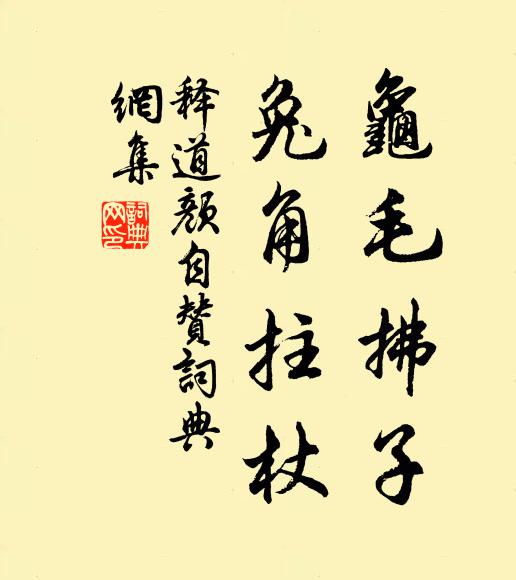 龜毛拂子
兔角拄杖
释道颜自赞詞典
網集
詞典
网印